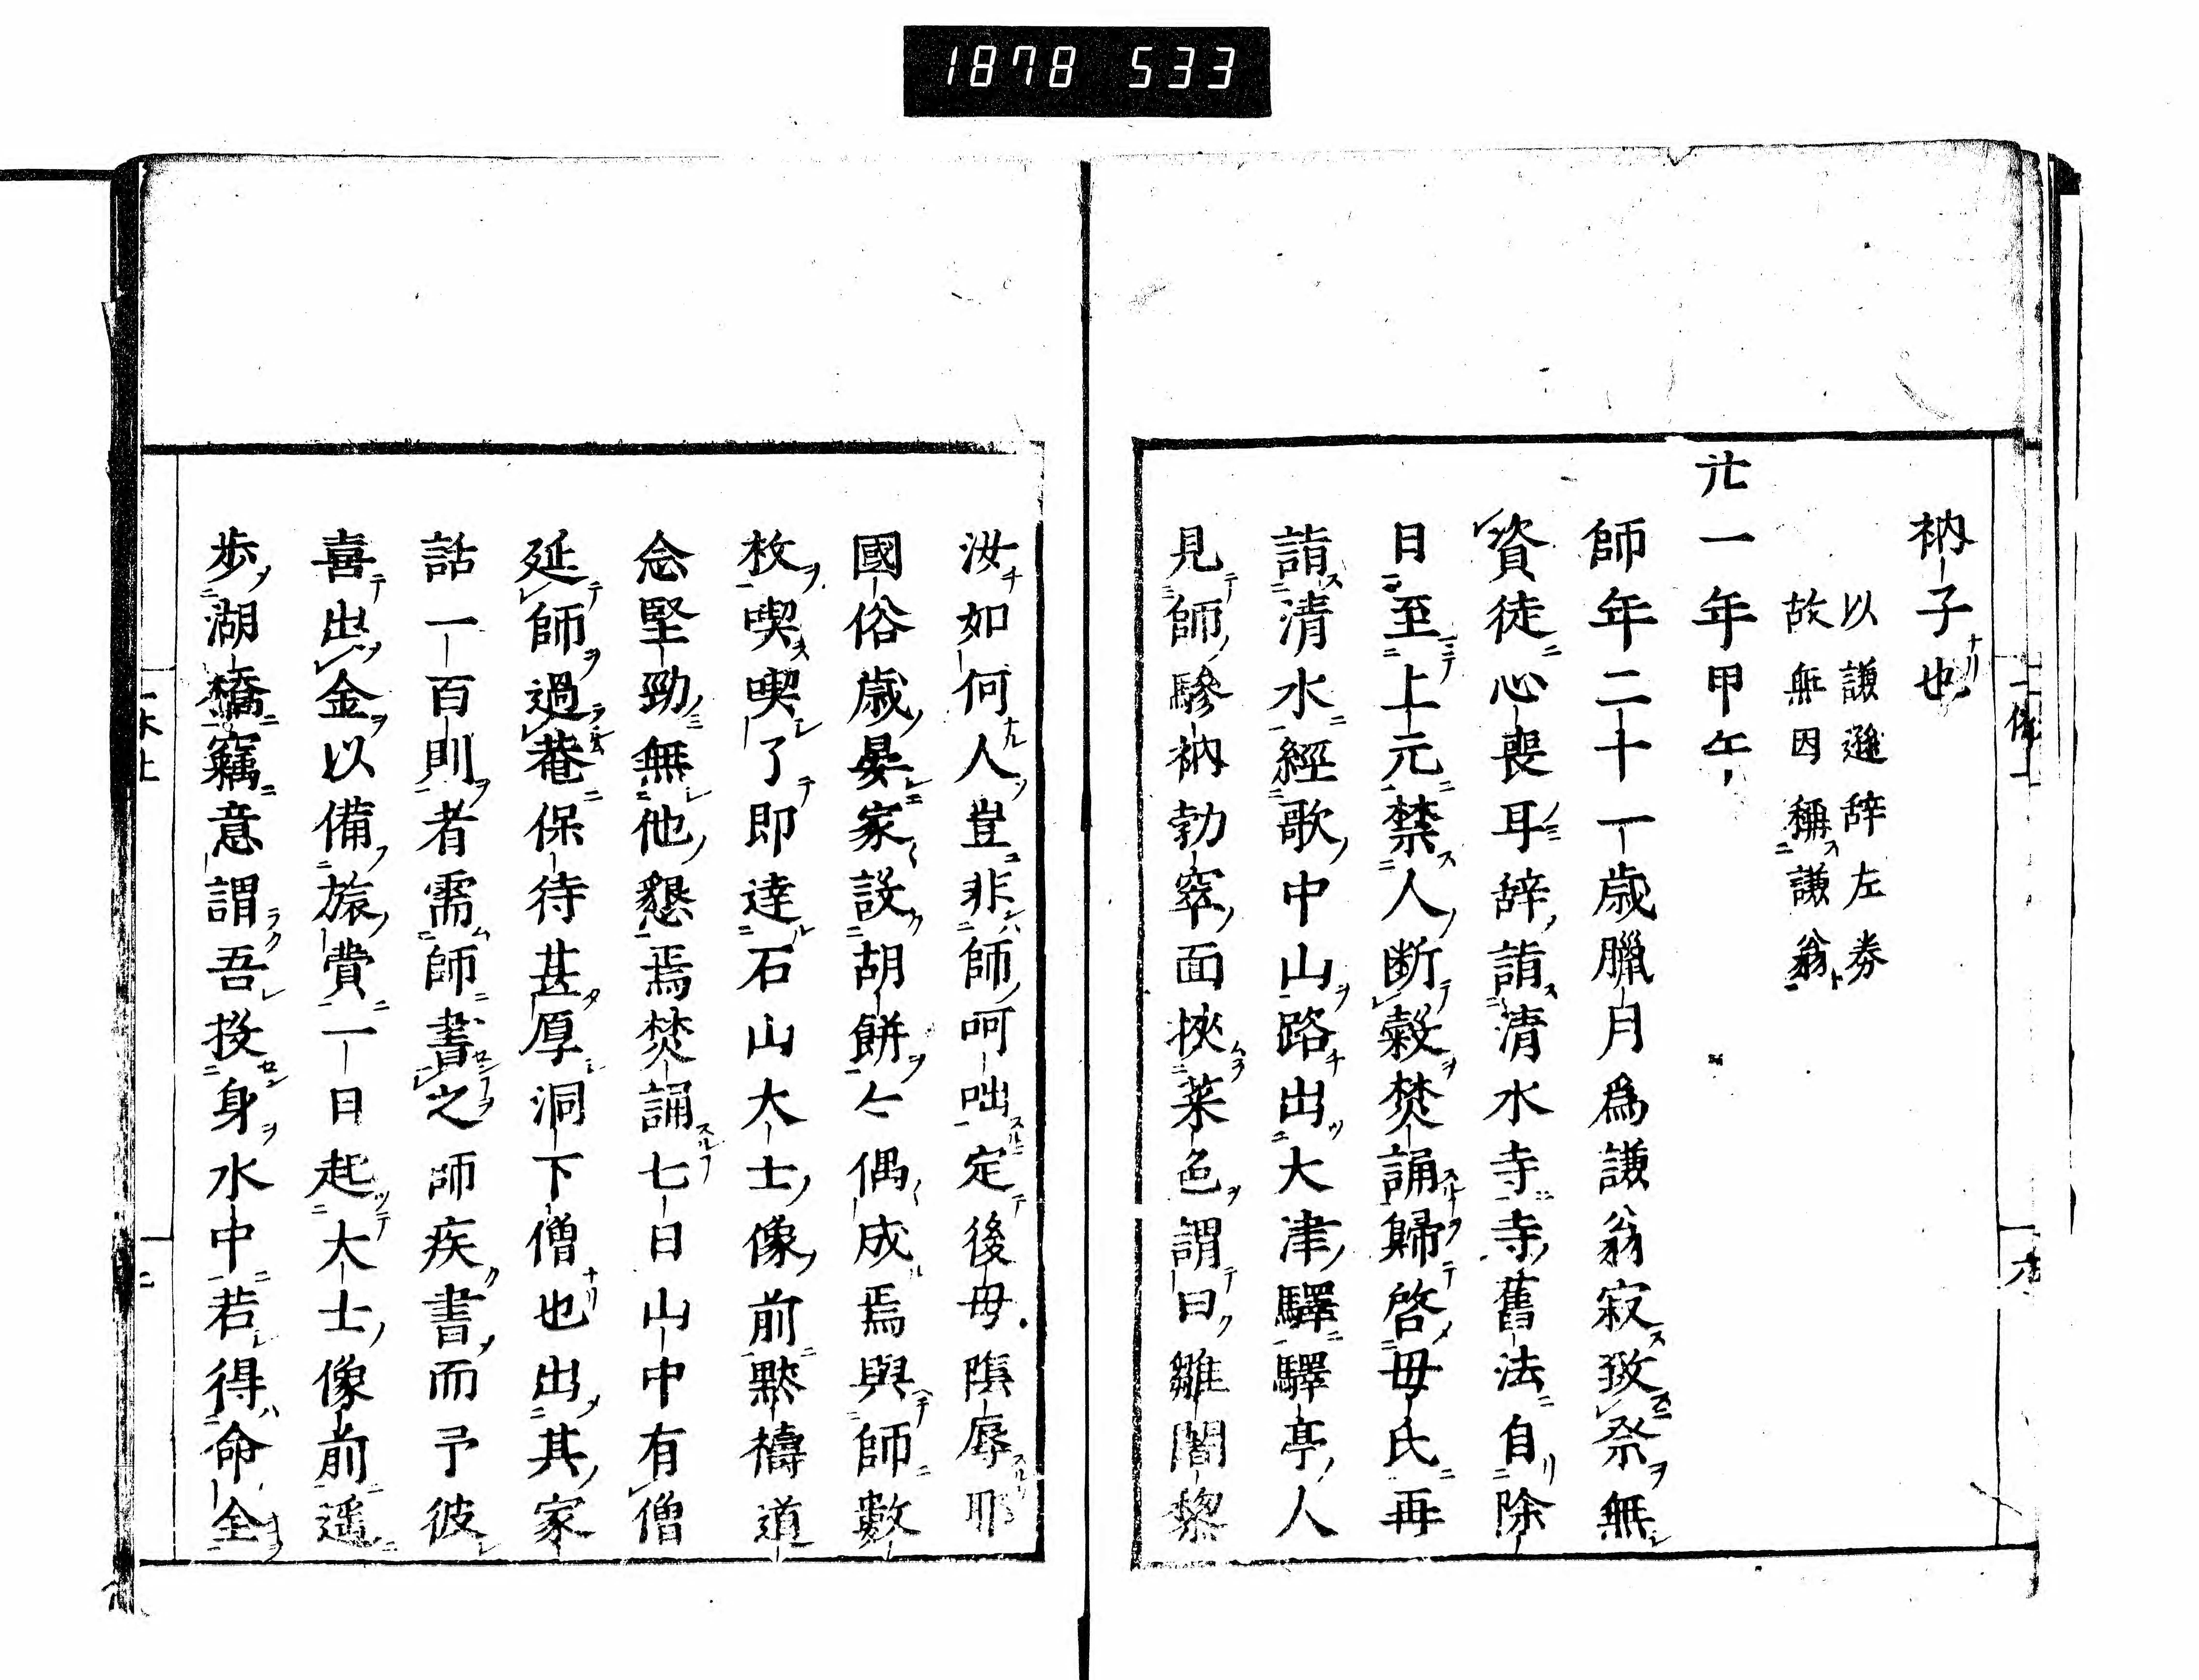 1878 533
衲子也
以謙遜辞左券
故無因稱謙翁
廿一年甲午
師年二十一歳臘月為謙翁寂致祭無
資徒心喪耳辞詣清水寺寺舊法自除
日至上元禁人断穀焚誦歸啓母氏再
詣清水經歌中山路出大津驛驛亭人
見師驂衲勃窣面挾菜色謂曰雛闍黎
汝如何人豈非師呵咄定後母隕辱耶
國俗歳晏家〻設胡餅亼偶〻成焉與師數
枚喫喫了即達石山大士像前黙禱道
念堅勁無他懇焉焚誦七日山中有僧
延師過菴保待甚厚洞下僧也出其家
話一百則者需師書之師疾書而予彼
喜出金以備旅費一日起大士像前遥
歩湖橋竊意謂吾投身水中若得命全